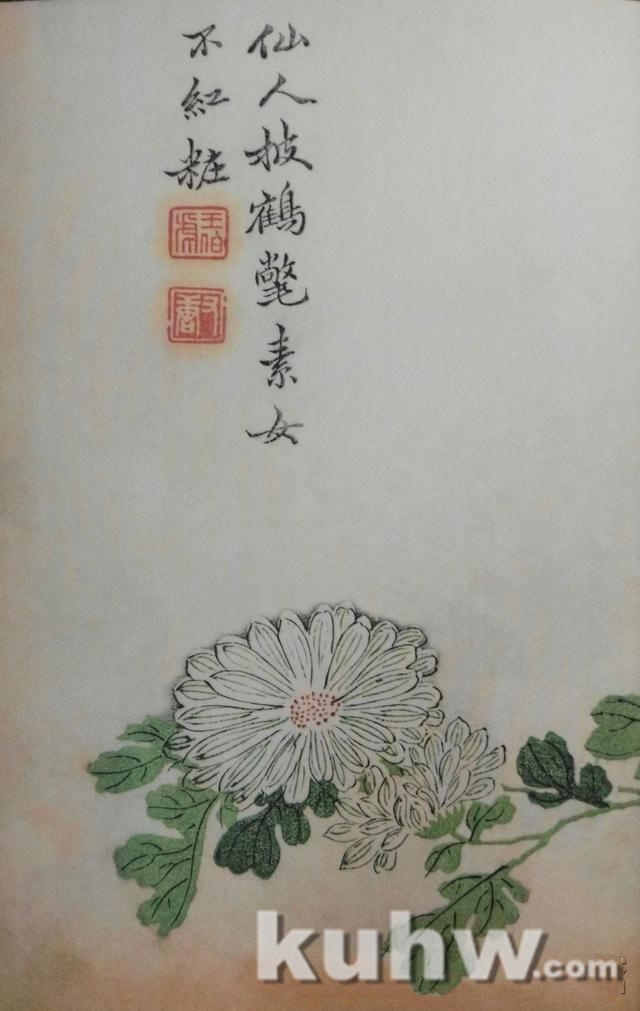 仙人披鶴氅素女
不紅粧
kuhw.com